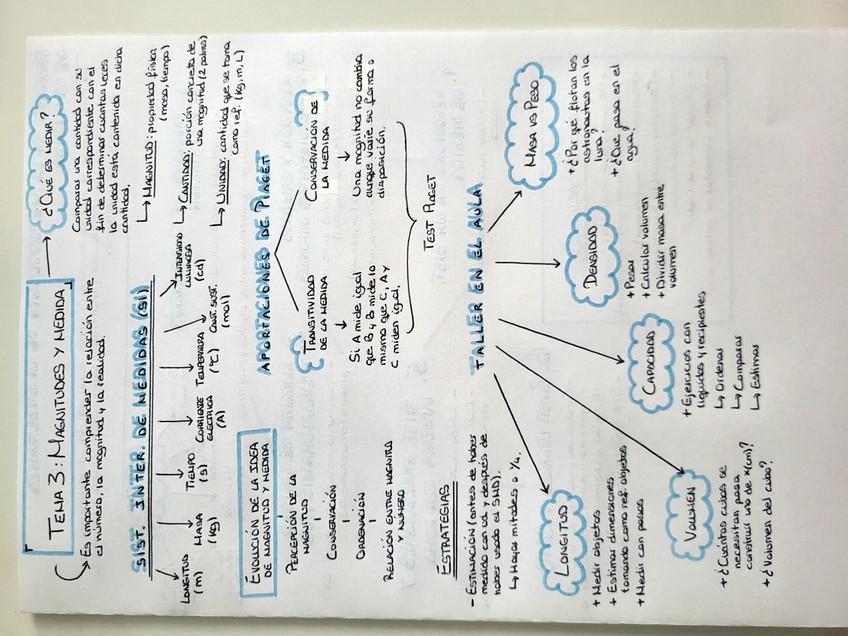 TEMA 3: MAGNITUDES Y MEDIDA
Es importante comprender la relación entre
el número, la magnitud y la realidad.
¿QUÉ ES MEDIR?
Comparar una cantidad con su
unidad correspondiente con el
fin de determinar cuantas veces
la unidad está contenida en dicha
cantidad.
MAGNITUD: propiedad física
(masa, tiempo)
CANTIDAD: porción concreta de
una magnitud (2 palmos)
UNIDAD: cantidad que se toma
como ref. (kg, m, L)
SIST. INTER. DE MEDIDAS (SI)
LONGITUD
(m)
MASA
(kg)
TIEMPO
(s)
CORRIENTE
ELÉCTRICA
(A)
TEMPERATURA
(ºC)
CANT. SUST.
(mol)
INTENSIDAD
LUMINOSA
(cd)
EVOLUCIÓN DE LA IDEA
DE MAGNITUD Y MEDIDA
PERCEPCIÓN DE LA
MAGNITUD
CONSERVACIÓN
ORDENACIÓN
RELACIÓN ENTRE MAGNITUD
Y NÚMERO
APORTACIONES DE PIAGET
TRANSITIVIDAD
DE LA MEDIDA
Si A mide igual
que B y B mide lo
mismo que C, A y
C miden igual.
CONSERVACIÓN DE
LA MEDIDA
Una magnitud no cambia
aunque varíe su forma o
disposición.
TEST PIAGET
ESTRATEGIAS
- ESTIMACIÓN (antes de haber
medido con ud. y después de
haber usado el SMD).
Hayar mitades o 1/4.
TALLER EN EL AULA
LONGITUD
+ Medir objetos
+ Estimar dimensiones
tomando como ref. objetos
+ Medir con pasos
VOLUMEN
+ ¿Cuántos cubos se
necesitan para
construir uno de x(cm)?
+ ¿Volumen del cubo?
CAPACIDAD
+ Ejercicios con
líquidos y recipientes
Ordenar
Comparar
Estimar
DENSIDAD
+ Pesar
+ Calcular volumen
+ Dividir masa entre
volumen
MASA VS PESO
+ ¿Por qué flotan los
astronautas en la
luna?
+ ¿Qué pasa en el
agua?